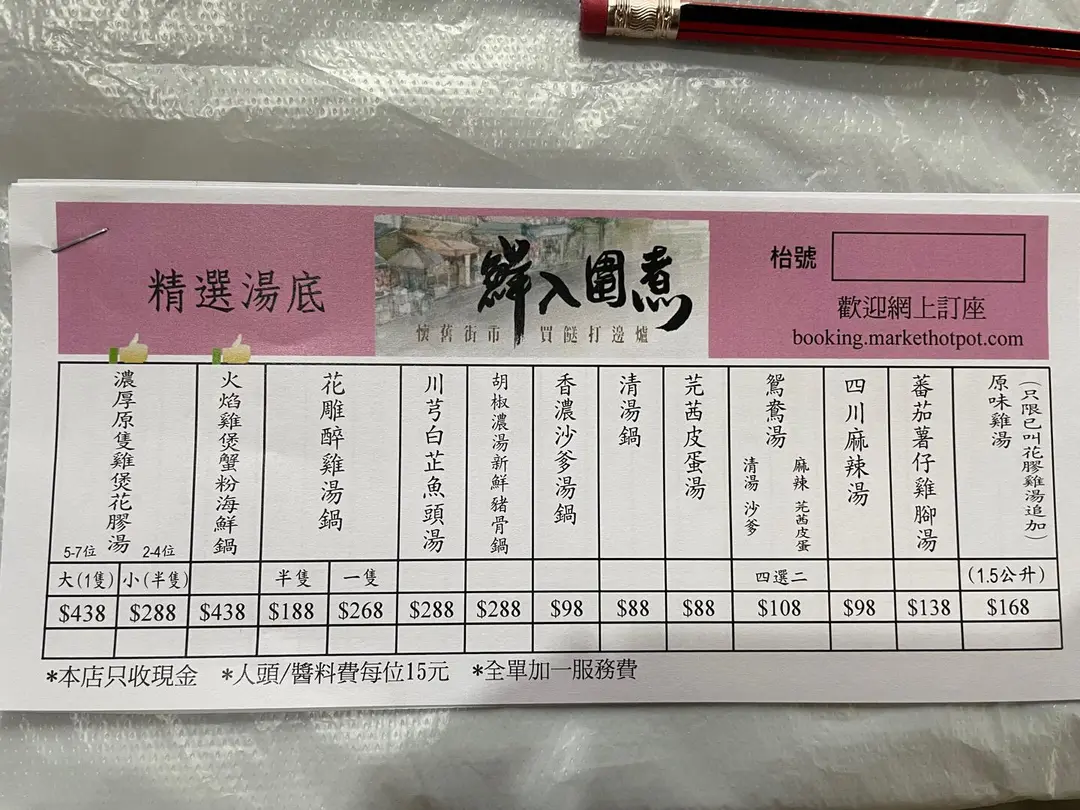 精選湯底
鮮入圍煮
懷舊街市 買餸打邊爐
枱號
歡迎網上訂座
booking.markethotpot.com
濃厚原隻雞煲花膠湯
5-7位 2-4位
火焰雞煲蟹粉海鮮鍋
花雕醉雞湯鍋
川芎白芷魚頭湯
胡椒濃湯新鮮豬骨鍋
香濃沙爹湯鍋
清湯鍋
芫茜皮蛋湯
鴛鴦湯
麻辣 芫茜皮蛋
清湯 沙爹
四川麻辣湯
蕃茄薯仔雞腳湯
(只限已叫花膠雞湯追加)
原味雞湯
大(1隻) 小(半隻) 半隻 一隻 四選二 (1.5公升)
$438 $288 $438 $188 $268 $288 $288 $98 $88 $88 $108 $98 $138 $168
*本店只收現金 *人頭/醬料費每位15元 *全單加一服務費